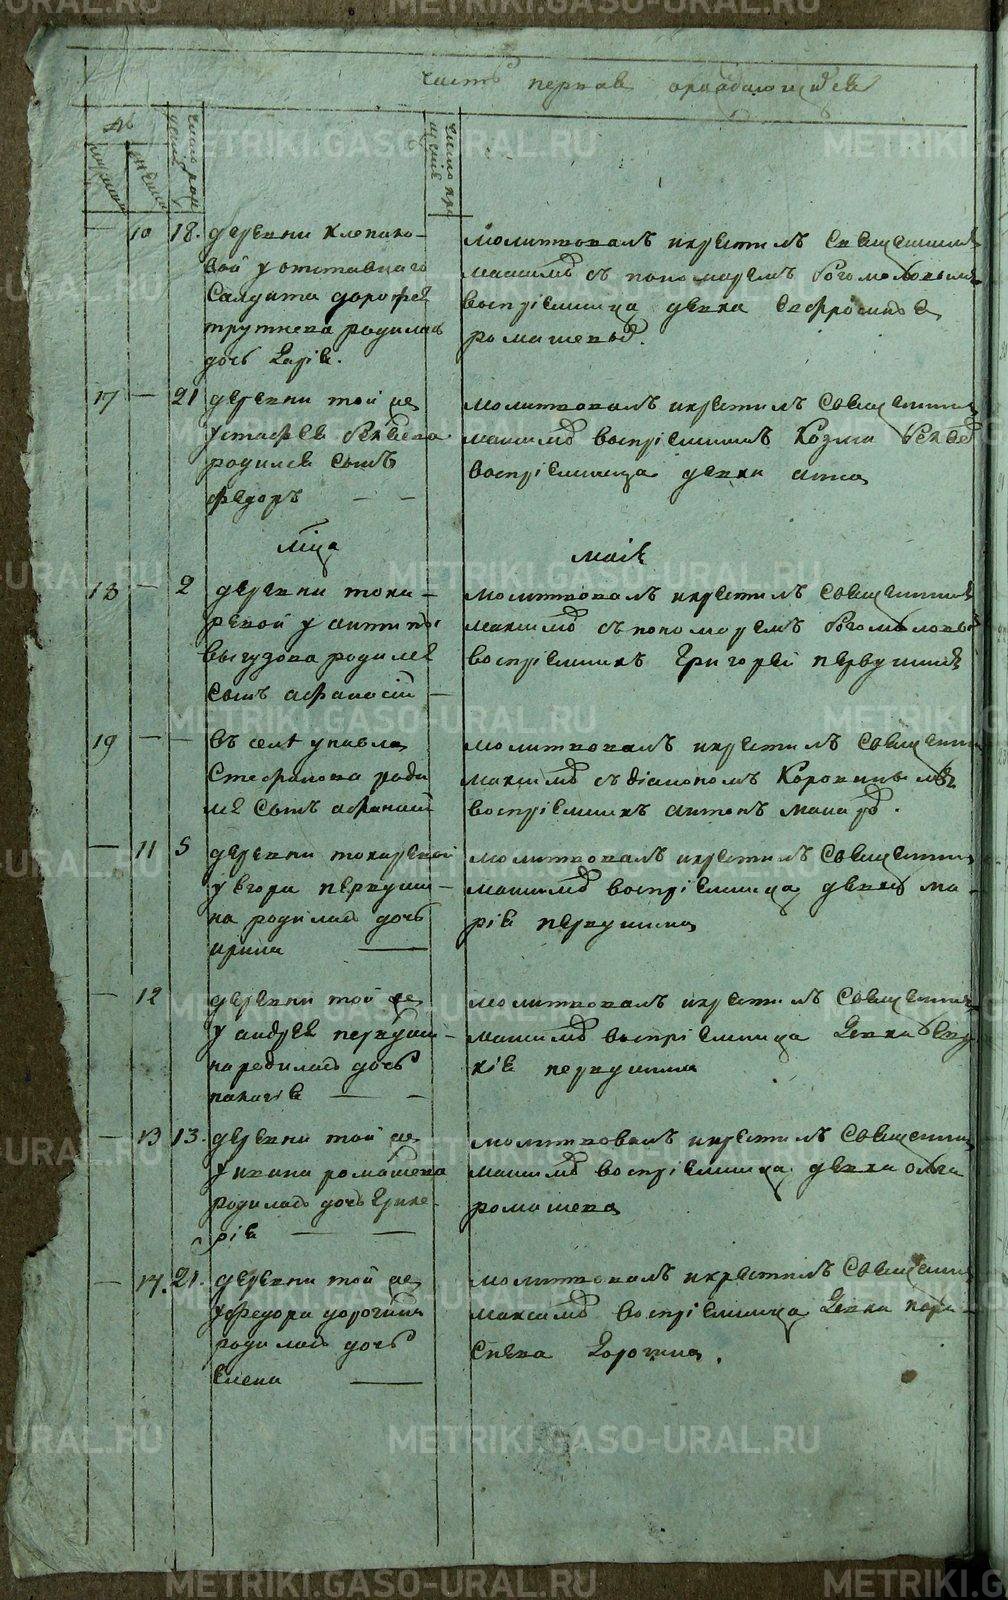 часть первая о раждающихся
№
мужска
женска
число рож
дения
число кре
щения
10 18. деревни клепико-
вой у отставнаго
Салдата дорофея
трутнева родилась
дочь Дарія.
молитвовалъ икрестилъ Священникъ
максимъ съ пономаремъ богомоловымъ
воспріемница девка ефросинья
ромашева.
17 — 21 деревни той же
у стафея
родился сынъ
федоръ — —
молитвовалъ икрестилъ Священникъ
максимъ воспріемникъ Козма
воспріемница девка анна
мца
маія
18 — 2 деревни тока-
ревой у антипы
выгузова родился
сынъ афанасій —
молитвовалъ икрестилъ Священникъ
максимъ съ пономаремъ богомоловымъ
воспріемникъ григорей первушинъ
19 — — въ селѣ у павла
Стефанова роди
лся сынъ афанасій
молитвовалъ икрестилъ Священникъ
максимъ съ діакономъ Коровинымъ
воспріемникъ антонъ
— 11 5 деревни токаревой
у егора первуши-
на родилась дочь
ирина —
молитвовалъ икрестилъ Священникъ
максимъ воспріемница девка ма-
рія первушина
— 12 деревни той же
у андрея первуши-
на родилась дочь
пелагія — —
молитвовалъ икрестилъ Священникъ
максимъ воспріемница Девка евдо
кія первушина
— 13 13. деревни той же
у ивана ромашева
родилась дочь глике-
рія — —
молитвовалъ икрестилъ Священникъ
максимъ воспріемница девка олга
ромашева
— 14. 21. деревни той же
у федора дорогина
родилась дочь
елена —
молитвовалъ икрестилъ Священникъ
максимъ воспріемница Девка пара
скева Дорогина.
METRIKI.GASO-URAL.RU